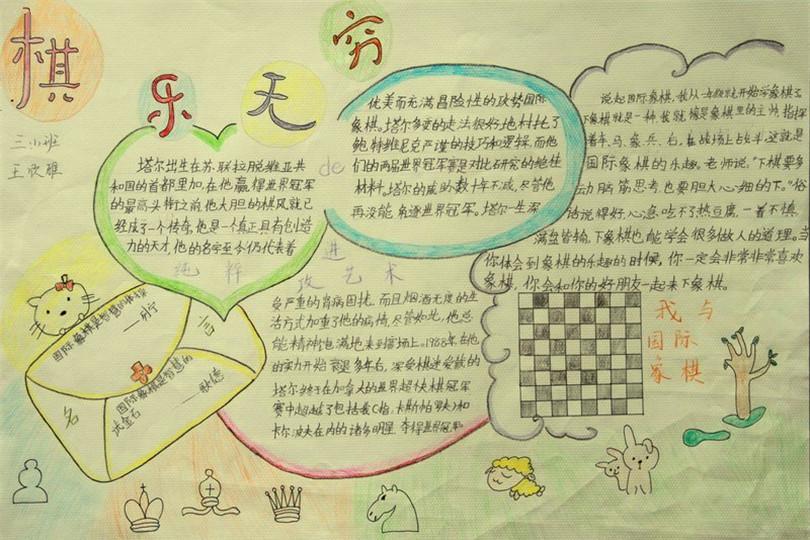 棋
乐
无
穷
三(1)班
塔尔出生在苏联拉脱维亚共
和国的首都里加,在他赢得世界冠军
的最高头衔之前,他大胆的棋风就已
经成了一个传奇,他是一个真正具有创造
力的天才,他的名字至今仍代表着
纯粹
de
进
攻艺术
优美而充满冒险性的攻势国际
象棋。塔尔多变的走法很好地衬托了
鲍特维尼克严谨的技巧和逻辑,而他
们的两届世界冠军赛是对比研究的绝佳
材料。塔尔的威助数十年不减,尽管他
再没能角逐世界冠军。塔尔一生深
受严重的肾病困扰,而且烟酒无度的生
活方式加重了他的病情,尽管如此,他总
能精神饱满地来到赛场上。1988年,在他
的实力开始衰退多年后,深受棋迷爱戴的
塔尔终于在加拿大的世界超快棋冠军
赛中超越了包括着(C指,卡斯帕罗夫)和
卡尔波夫在内的诸多明星,夺得世界冠军
说起国际象棋,我从一年级就开始学象棋了
下象棋就是一种,我就像是象棋里的主帅,指挥
着车、马、象、兵、后,在战场上战斗,这就是
国际象棋的乐趣。老师说:“下棋要多
动脑筋思考,也要胆大心细的下。”俗
话说得好,心急吃不了热豆腐,一着不慎,
满盘皆输,下象棋也能学会很多做人的道理。当
你体会到象棋的乐趣的时候,你一定会非常非常喜欢
象棋,你会和你的好朋友一起来下象棋。
我与
国际
象棋
名
言
国际象棋是智慧的体操
——列宁
国际象棋是智慧的
试金石
——歌德